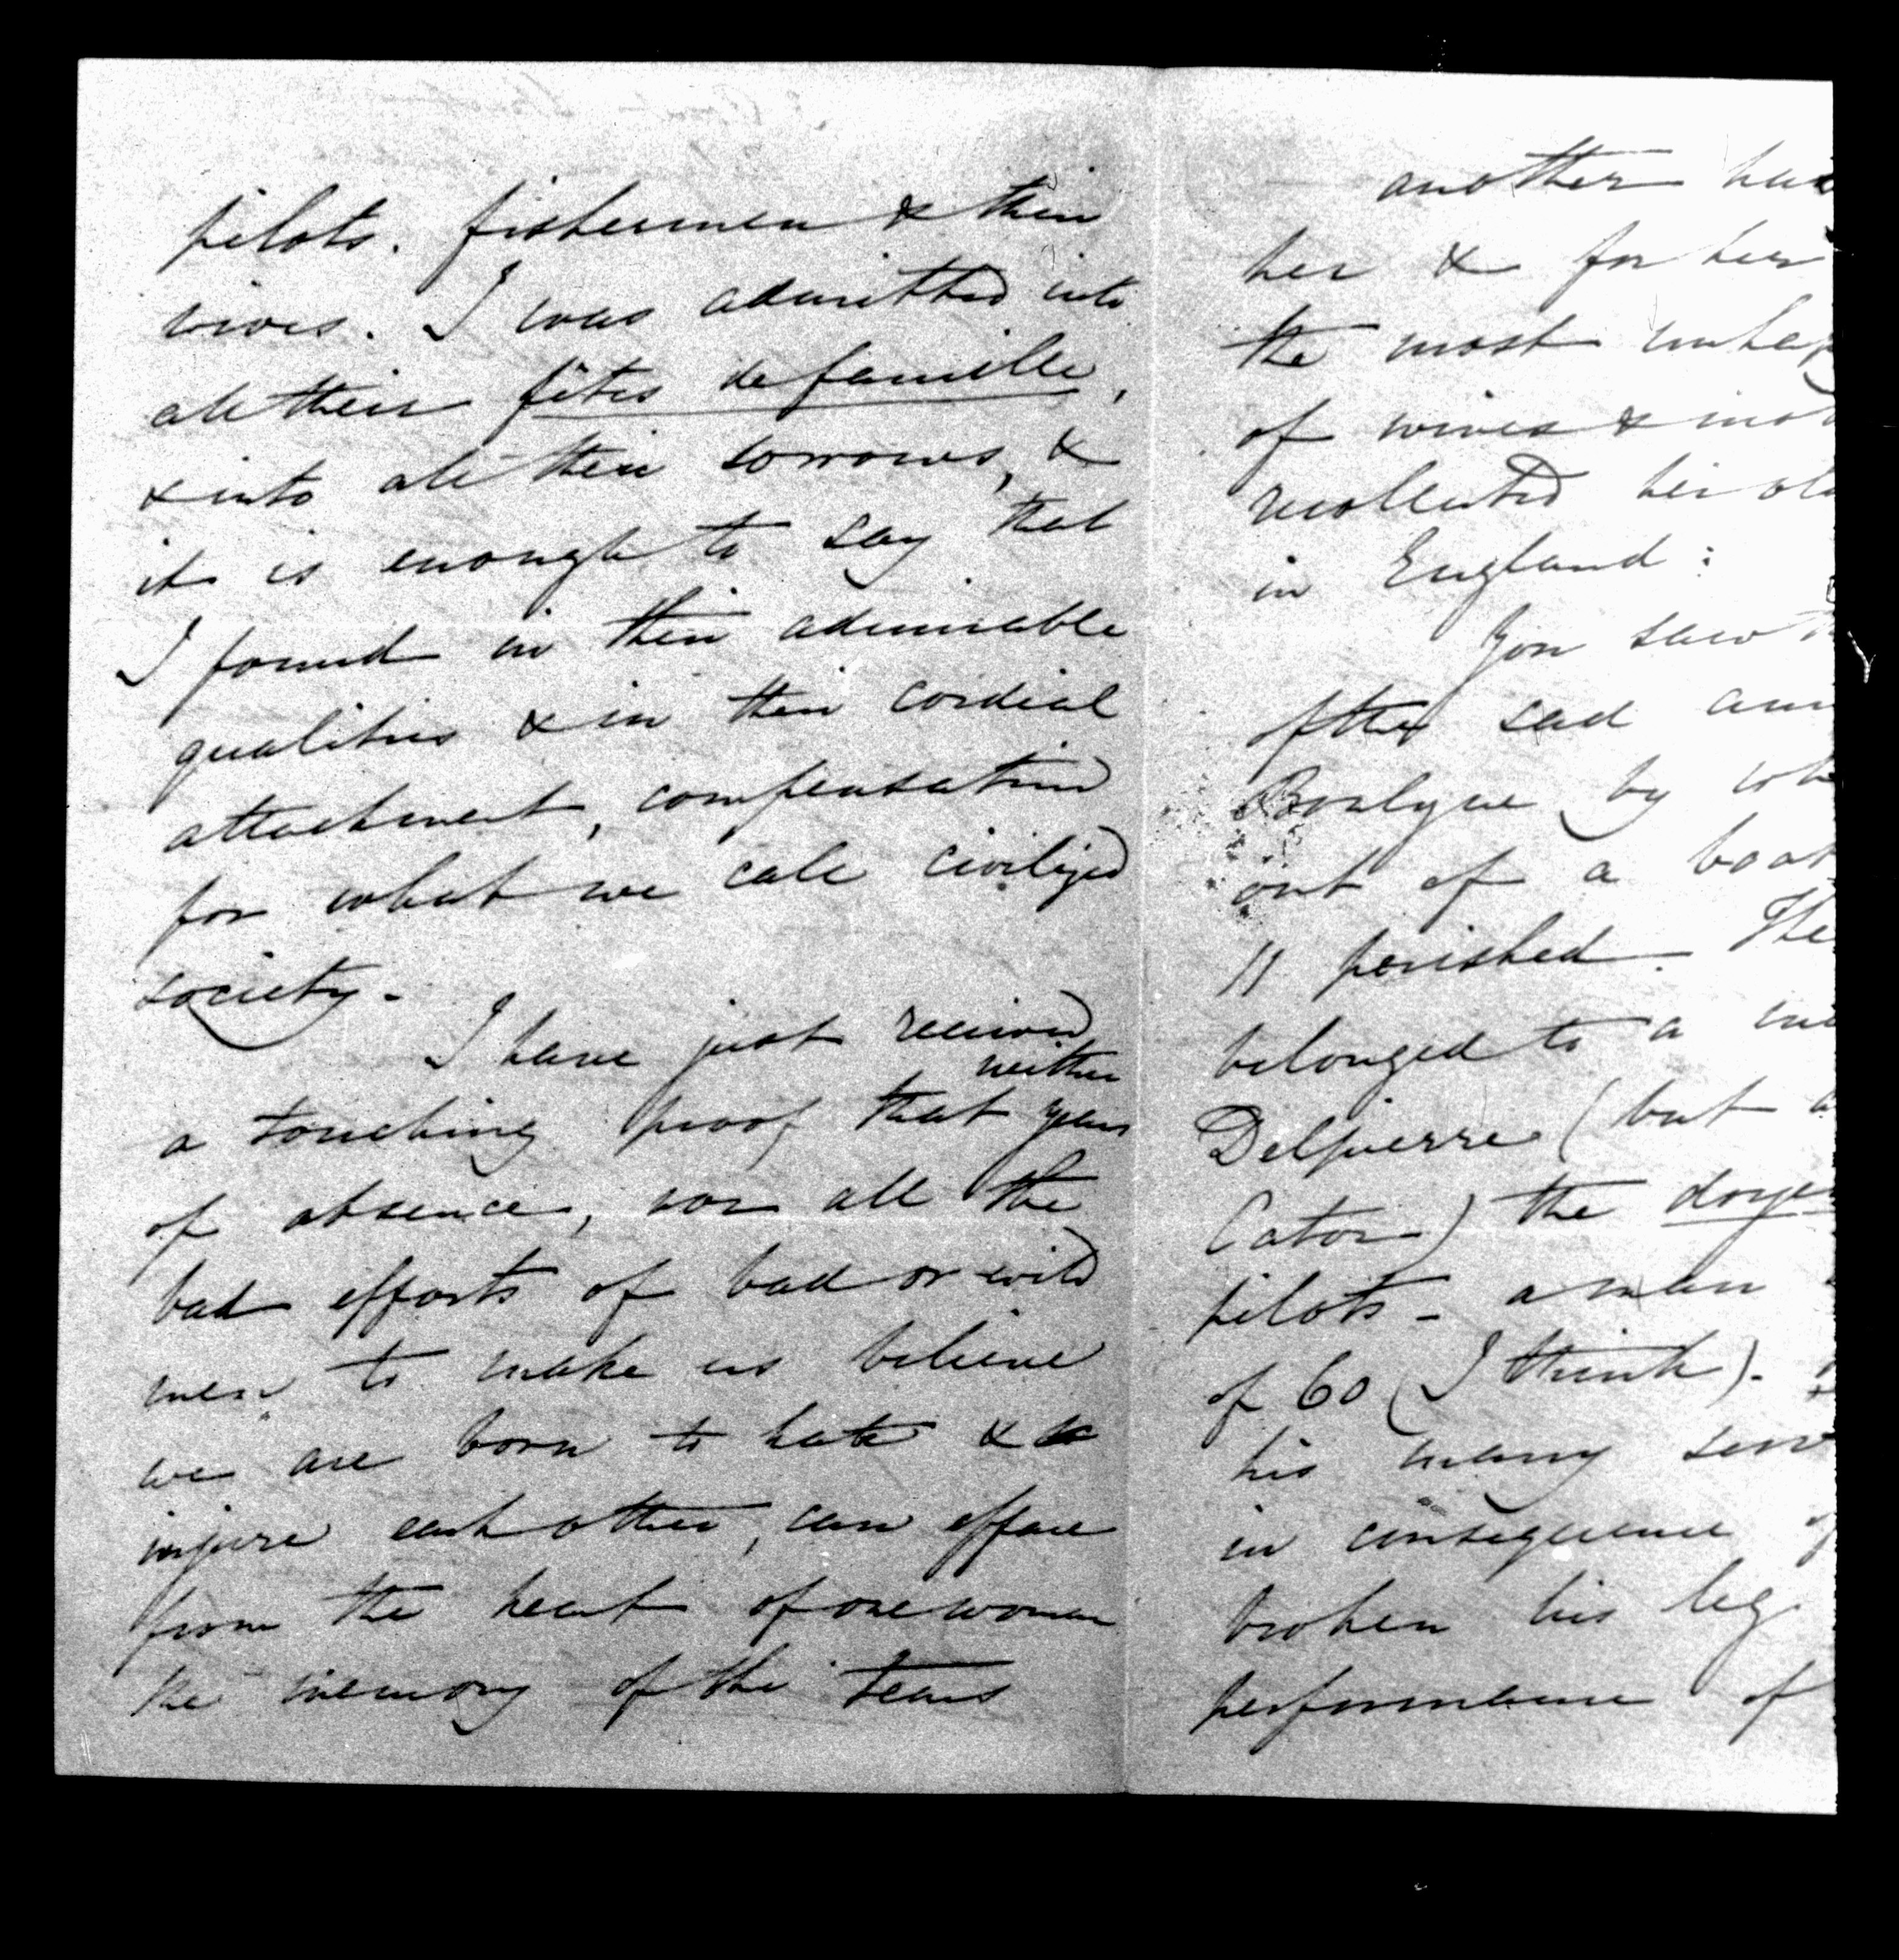 pilots. fishermen & their
wives. I was admitted into
all their fêtes de famille,
& into all their sorrows, &
it is enough to say that
I found in their admirable
qualities & in their cordial
attachment, compensation
for what we call civilized
society -
I have just received
a touching proof that neither years
of absence, nor all the
bad efforts of bad or wild
men to make us believe
we are born to hate & to
injure each other, can efface
from the heart of one woman
the memory of the tears
another has
her & for her
the most unhap
of wives & mo
recollected her old
in England:
You saw
of the sad
Boulgne by
out of a boat
11 perished - The
belonged to a
Delpierre (but
Cator) the doye
pilots - a man
of 60 (I think) -
his many
in consequence of
broken his leg
performance of